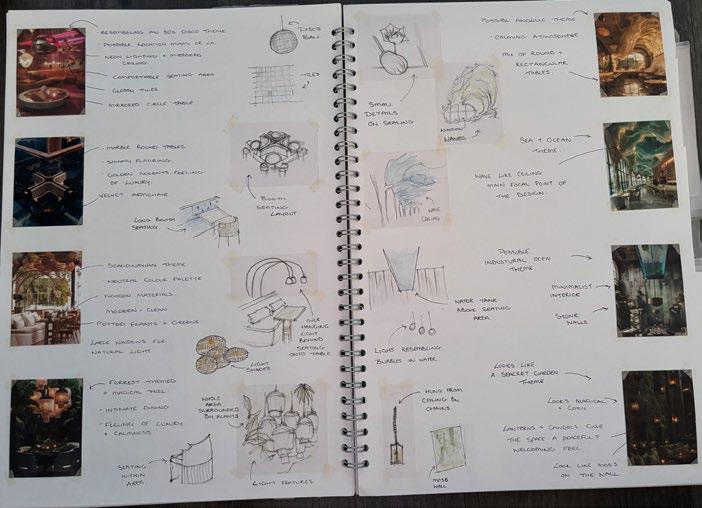 · RESEMBELING AN 80'S DISCO THEME
· POSSIBLE LOCATION MIAMI OR LA
NEON LIGHTING + MIRRORED
CEILING
COMFORTABLE SEATING AREA
GLOSSY TILES
MIRRORED CIRCLE TABLE
DISCO
BALL
TILES
· MARBLE ROUND TABLES
· SHINNY FLOORING
· GOLDEN ACCENTS, FEELING
OF LUXURY
VELVET ARMCHAIR
LONG BOOTH
SEATING
BOOTH
SEATING
LAYOUT
· SCANDINAVIAN THEME
· NEUTRAL COLOUR PALETTE
· WOODEN MATERIALS
MODERN + CLEAN
POTTED PLANTS + GREENE
LARGE WINDOWS FOR
NATURAL LIGHT
OVER
HANGING
LIGHT
BEHIND
SEATING
ONTO TABLE
LIGHT
SHADES
· FORREST THEMED
+ MAGICAL FEEL
· INTIMATE DINING
· FEELING OF LUXURY
+ CALMNESS
WHOLE
AREA
SURROUNDED
BY PLANTS
SEATING
WITHIN
AREA
LIGHT FEATURES
POSSIBLE ANGELIC THEME
· CALMING ATMOSPHERE
· MIX OF ROUND +
RECTANGULAR
TABLES
SMALL
DETAILS
ON SEALING
WAVES
SEA + OCEAN
THEME
WAVE LIKE CEILING
MAIN FOCAL POINT OF
THE DESIGN.
WAVE
CEILING
POSSIBLE
INDUSTURAL OCEN
THEME
MINIMALIST
INTERIOR
STONE
WALLS
WATER TANK
ABOVE SEATING
AREA
LIGHT RESEMBLING
BUBBLES IN WATER
HUNG FROM
CEILING BY
CHAINS
MOSS
WALL
LOOKS LIKE
A SEACRET GARDEN
THEME
LOOKS MAGICAL
+ COSY
LANTERNS + CANDELS GIVE
THE SPACE A PEACEFUL +
WELCOMING FEEL
LOOK LIKE MOSS
ON THE WALL